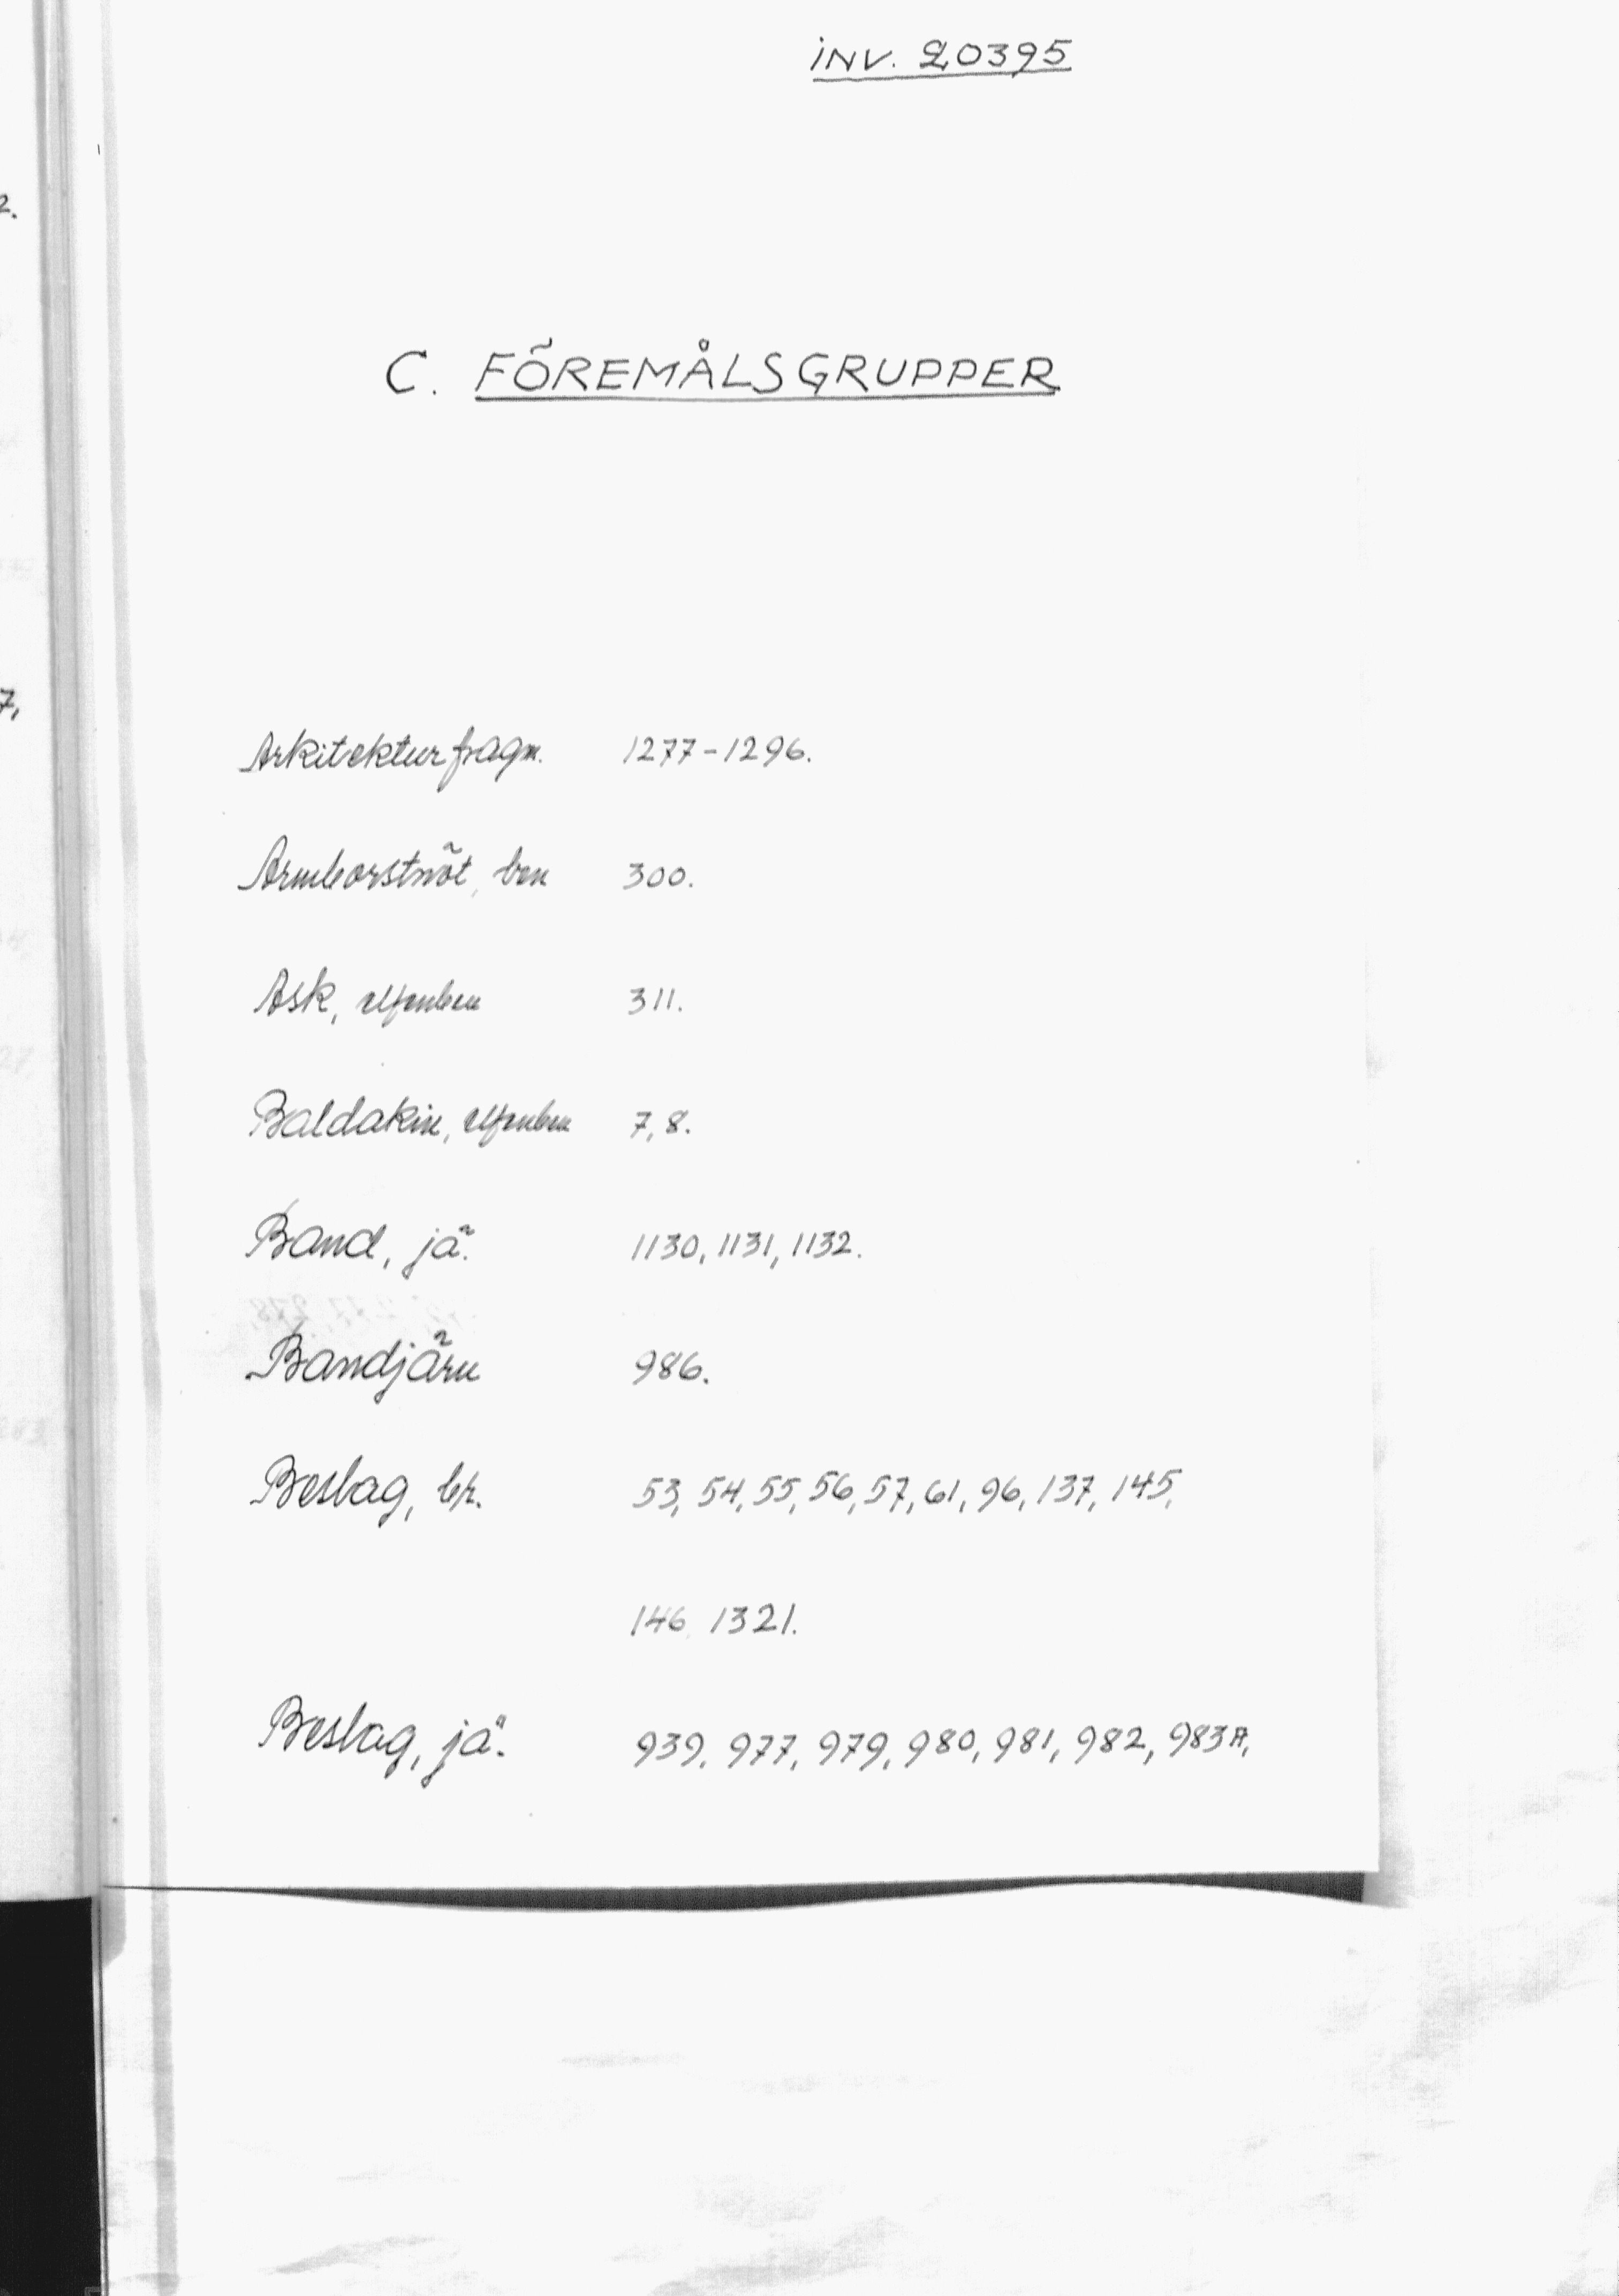 inv. 20395
C. FÖREMÅLSGRUPPER
Arkitekturfragm. 1277-1296.
Armborstnöt, ben 300.
Ask, elfenben 311.
Baldakin, elfenben 7, 8.
Band, jä. 1130, 1131, 1132.
Bandjärn 986.
Beslag, br. 53, 54, 55, 56, 57, 61, 96, 137, 145,
146, 1321.
Beslag, jä. 939, 977, 979, 980, 981, 982, 983A,